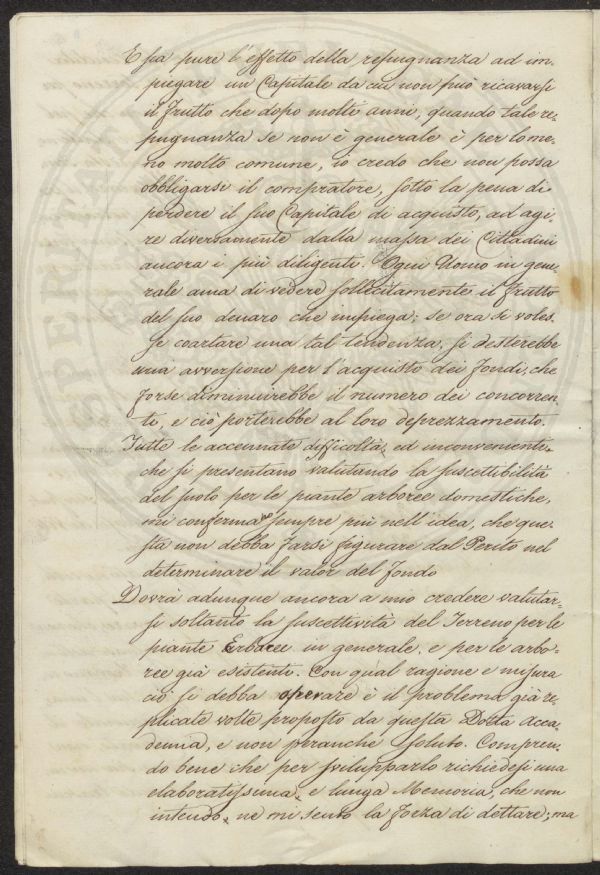 E sia pure l'effetto della repugnanza ad im,
piegare un Capitale da cui non può ricavarsi
il frutto che dopo molti anni, quando tale re,
pugnanza se non è generale è per lome,
no molto comune, io credo che non possa
obbligarsi il compratore, sotto la pena di
perdere il suo Capitale di acquisto, ad agi,
re diversamente dalla massa dei Cittadini
ancora i più diligenti. Ogni Uomo in gene,
rale ama di vedere sollecitamente il frutto
del suo denaro che impiega; se ora si voles,
se coartare una tal tendenza, si desterebbe
una avversione per l'acquisto dei fondi, che
forse diminuirebbe il numero dei concorren,
ti, e ciò porterebbe al loro deprezzamento.
Tutte le accennate difficoltà, ed inconvenienti,
che si presentano valutando la suscettibilità
del suolo per le piante arboree domestiche,
mi confermano sempre più nell'idea, che que,
sta non debba farsi figurare dal Perito nel
determinare il valor del fondo
Dovrà adunque ancora a mio credere valutar,
si soltanto la suscettività del Terreno per le
piante Erbacee in generale, e per le arbo,
ree già esistenti. Con qual ragione e misura
ciò si debba operare è il problema già re,
plicate volte proposto da questa Dotta Acca,
demia, e non peranche soluto. Compren,
do bene che per svilupparlo richiedesi una
elaboratissima, e lunga Memoria, che non
intendo, ne mi sento la forza di dettare; ma